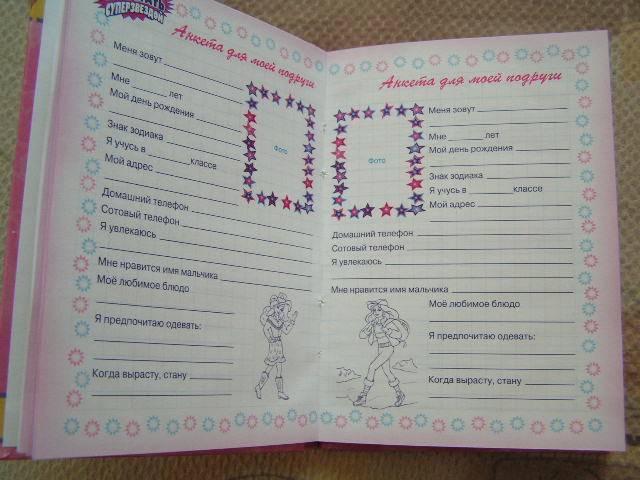 СУПЕРЗВЕЗДОЙ
Анкета для моей подруги
Меня зовут
Мне лет
Мой день рождения
Фото
Знак зодиака
Я учусь в классе
Мой адрес
Домашний телефон
Сотовый телефон
Я увлекаюсь
Мне нравится имя мальчика
Моё любимое блюдо
Я предпочитаю одевать:
Когда вырасту, стану
Анкета для моей подруги
Меня зовут
Мне лет
Мой день рождения
Фото
Знак зодиака
Я учусь в классе
Мой адрес
Домашний телефон
Сотовый телефон
Я увлекаюсь
Мне нравится имя мальчика
Моё любимое блюдо
Я предпочитаю одевать:
Когда вырасту, стану